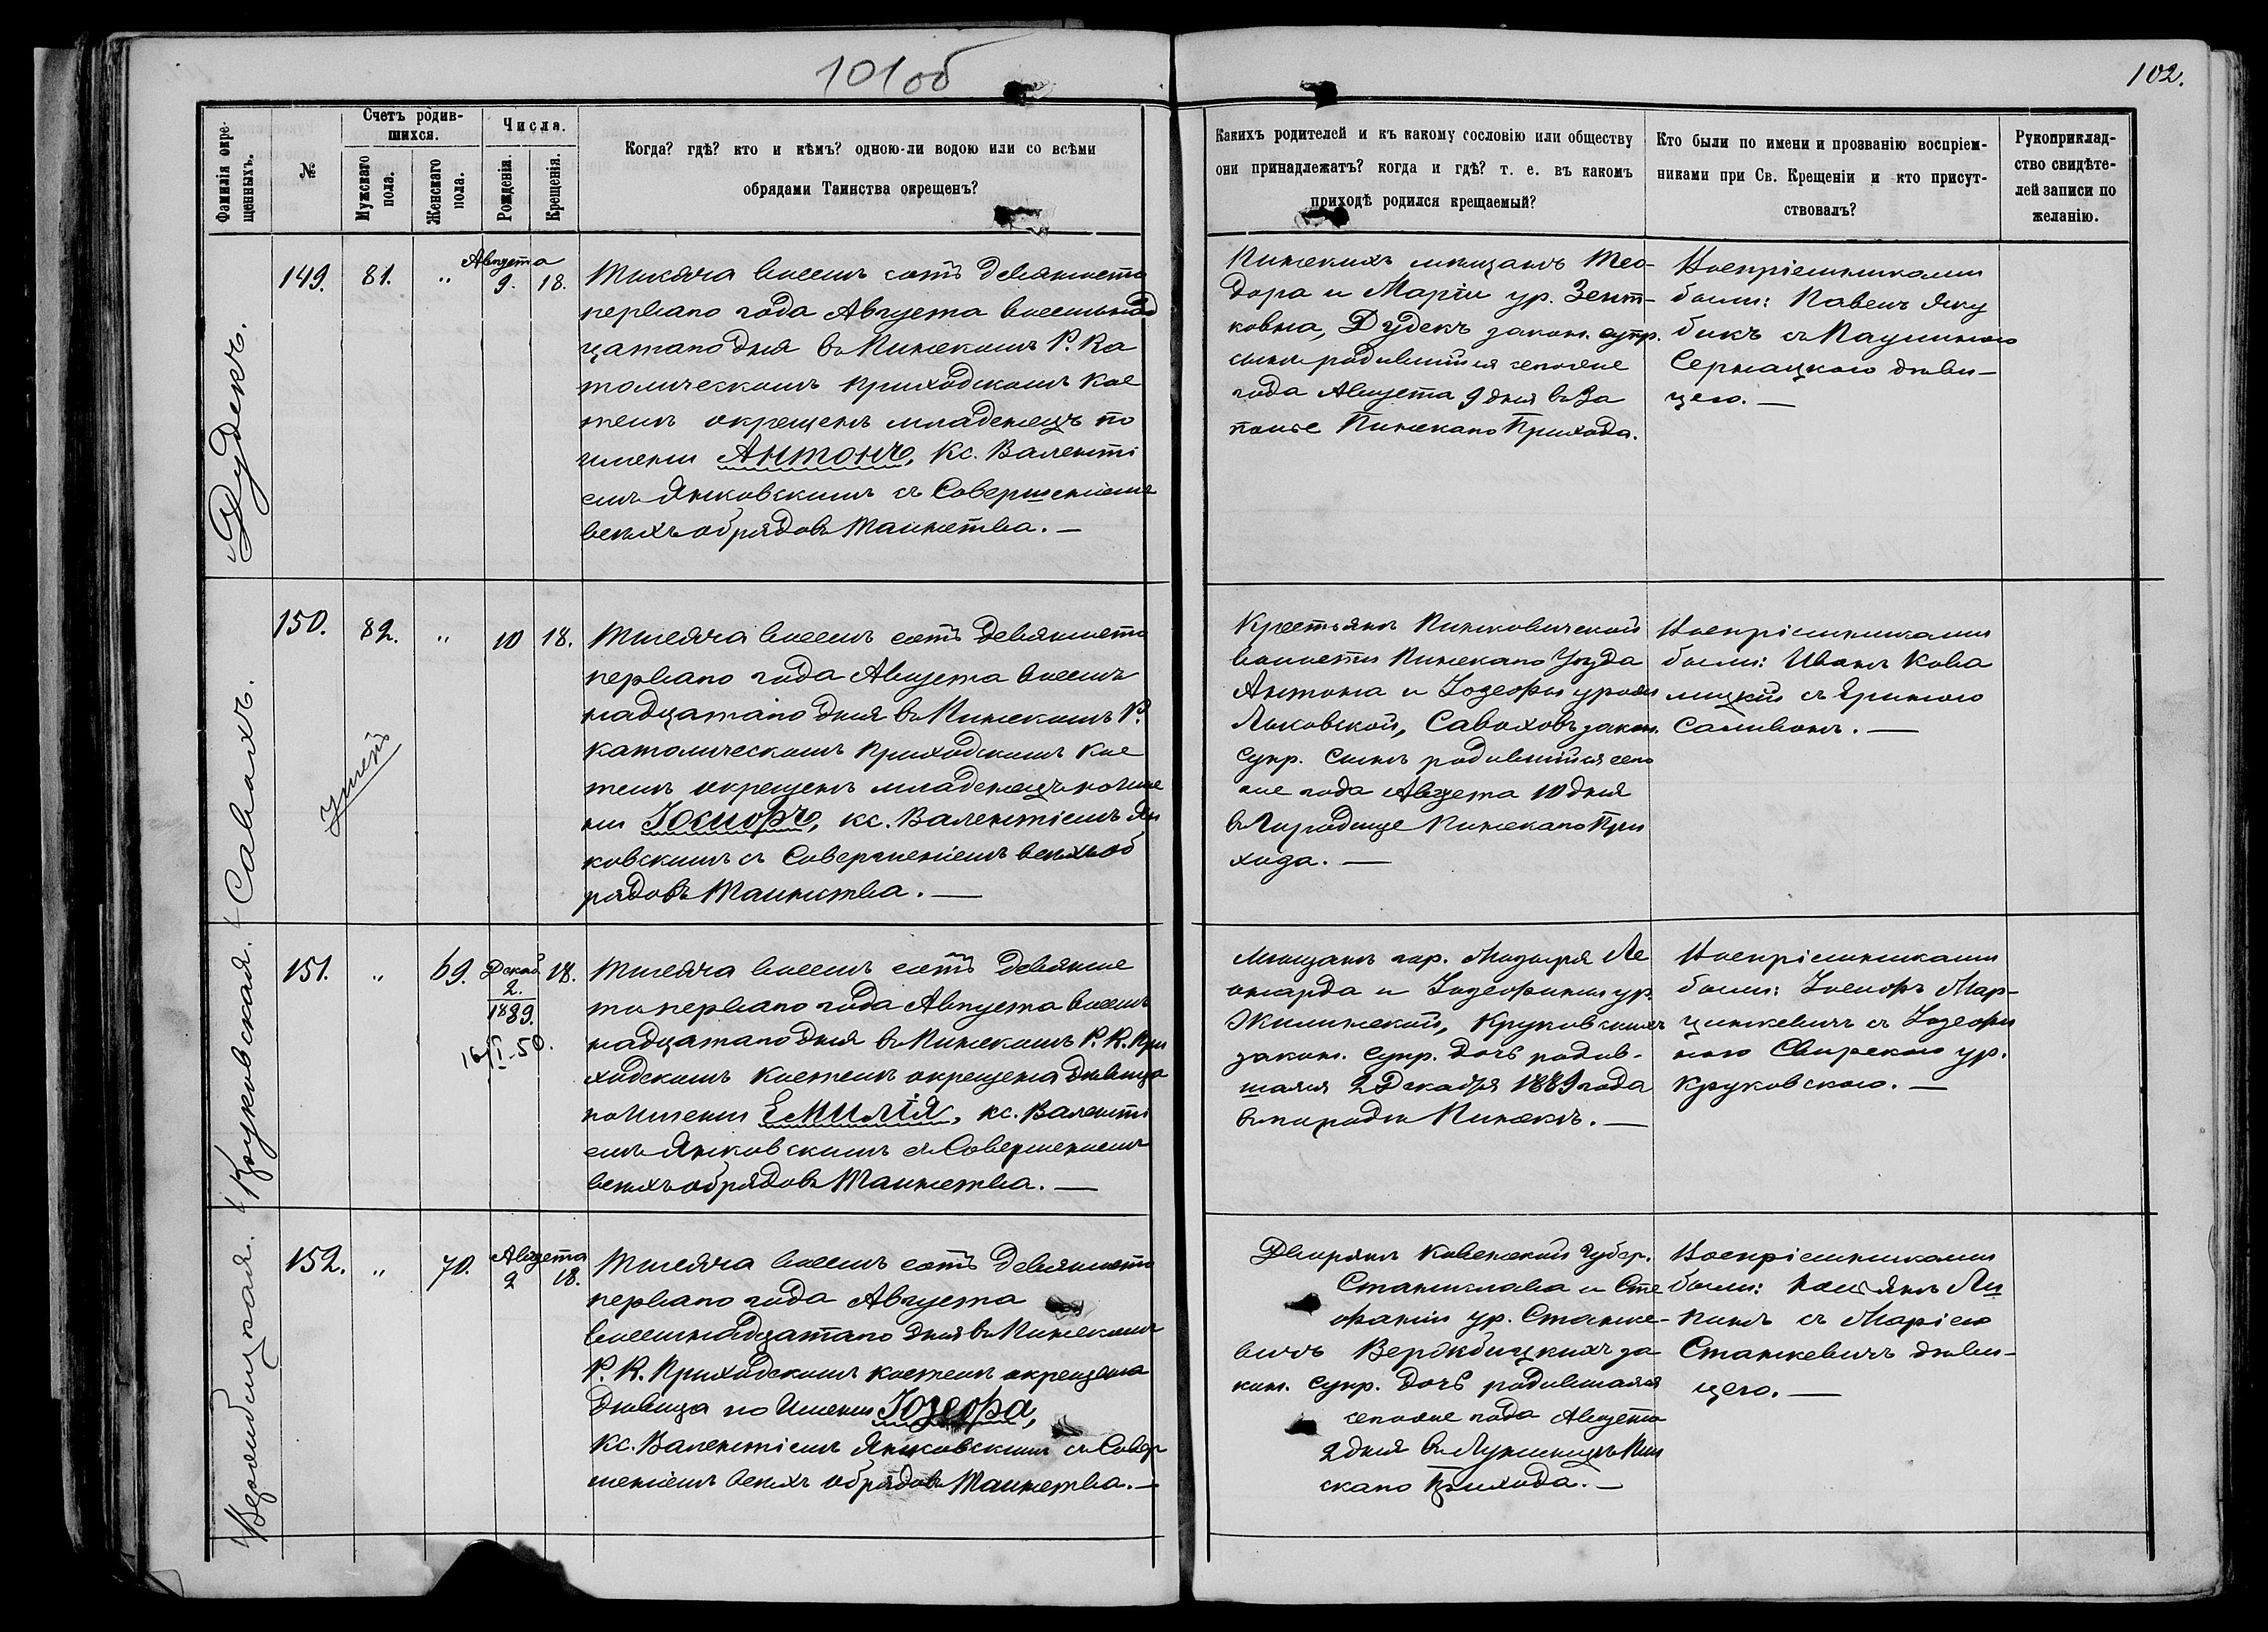 101об
102.
Фамилія окре-
щенныхъ.
№
Счетъ родив-
шихся.
Мужскаго
пола.
Женскаго
пола.
Числа.
Рожденія.
Крещенія.
Когда? гдѣ? кто и кѣмъ? одною-ли водою или со всѣми
обрядами Таинства окрещенъ?
Какихъ родителей и къ какому сословію или обществу
они принадлежатъ? когда и гдѣ? т. е. въ какомъ
приходѣ родился крещаемый?
Кто были по имени и прозванію воспріем-
никами при Св. Крещеніи и кто присут-
ствовалъ?
Рукоприклад-
ство свидѣте-
лей записи по
желанію.
Дудекъ.
149.
81.
"
Августа
9.
18.
Тысяча восемь сотъ девяносто
перваго года Августа восемьнад
цатаго дня въ Пинскомъ Р. Ка
толическомъ Приходскомъ Кос
телѣ окрещенъ младенецъ по
имени Антонъ, Кс. Валенті
емъ Янковскимъ съ Совершеніемъ
всѣхъ обрядовъ Таинства. —
Пинскихъ мѣщанъ Тео-
дора и Маріи ур. Зент-
ковна, Дудекъ закон. супр.
сынъ родившійся сегоже
года Августа 9 дня въ За
полье Пинскаго Прихода.
Воспріемниками
были: Павелъ Яку
бикъ съ Паулиною
Сернацкою дѣви-
цею. —
Савохъ.
150.
82.
"
10
18.
Тысяча восемь сотъ девяносто
перваго года Августа восемь
надцатаго дня въ Пинскомъ Р.
Католическомъ Приходскомъ Кос
телѣ окрещенъ младенецъ по име
ни Іосифъ, кс. Валентіемъ Ян
ковскимъ съ Совершеніемъ всѣхъ об
рядовъ Таинства. —
Крестьянъ Пинковичской
волости Пинскаго Уѣзда
Антона и Іозефы урож
Лысковской, Савоховъ закон.
Супр. сынъ родившійся сего
же года Августа 10 дня
въ Городище Пинскаго При
хода. —
Воспріемниками
были: Иванъ Кова
лицкій съ Яриною
Саливонъ. —
Круковская.
151.
"
69.
Декаб.
2.
1889.
18.
Тысяча восемь сотъ девянос
то перваго года Августа восемь
надцатаго дня въ Пинскомъ Р. К. При
ходскомъ Костелѣ окрещена дѣвица
по Имени Емилія, кс. Валенті
емъ Янковскимъ съ Совершеніемъ
всѣхъ обрядовъ Таинства. —
Мѣщанъ гор. Мозыря Ле
онарда и Іозефины ур.
Жилинской, Круковскихъ
закон. супр. дочь родив-
шаяся 2 Декабря 1889 года
въ городѣ Пинскѣ. —
Воспріемниками
были: Іосифъ Мар-
цинкевичъ съ Іозефи
ною Свирскою ур.
Круковскою. —
Вержбицкая.
152.
"
70.
Августа
2
18.
Тысяча восемь сотъ девяносто
перваго года Августа
восемнадцатаго дня въ Пинскомъ
Р. К. Приходскомъ костелѣ окрещена
дѣвица по Имени Іозефа,
Кс. Валентіемъ Янковскимъ съ Совер
шеніемъ всѣхъ обрядовъ Таинства. —
Дворянъ Ковенской Губер.
Станислава и Сте
фаніи ур. Станке-
вичъ Вержбицкихъ за
кон. супр. дочь родившаяся
сегоже года Августа
2 дня въ Лунинцѣ Пин
скаго Прихода. —
Воспріемниками
были: Ли
пинъ съ Маріею
Станкевичъ дѣви-
цею. —